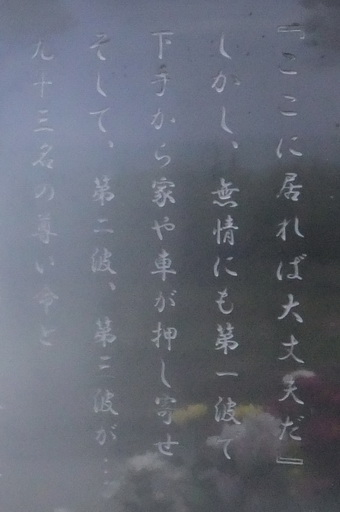 『ここに居れば大丈夫だ』
しかし、無情にも第一波て
下手から家や車が押し寄せ
そして、第二波、第三波が…
九十三名の尊い命と